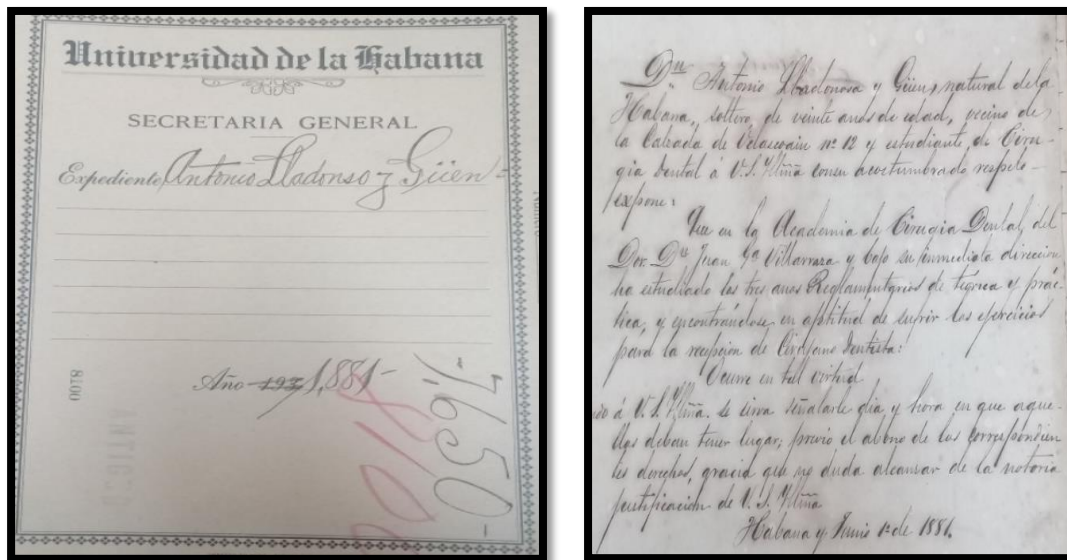 Universidad de la Habana
SECRETARIA GENERAL
Expediente Antonio Lladonso y Güen
Año 193 1,881-
8100
7.650-
8100
ANTIGUO
Dn Antonio Lladonosa y Güen, natural de la
Habana, soltero, de veinte años de edad, vecino de
la Calzada de Velascoain nº 12 y estudiante de Ciru-
gia Dental á V.S. Yltma con su acostumbrado respeto
expone:
Que en la Academia de Cirugia Dental, del
Dor. Dn Juan Ga Villarraza y bajo su inmediata direccion
ha estudiado los tres años Reglamentarios de teorica y prác-
tica, y encontrándose en aptitud de sufrir los ejercicios
para la recepcion de Cirujano Dentista:
Ocurre en tal virtud
á V. S. Yltma. se sirva señalarle dia y hora en que aque-
llos deban tener lugar, previo el abono de los correspondien
tes derechos, gracia que no duda alcansar de la notoria
justificacion de V. S. Yltma
Habana y Junio 1º de 1881.